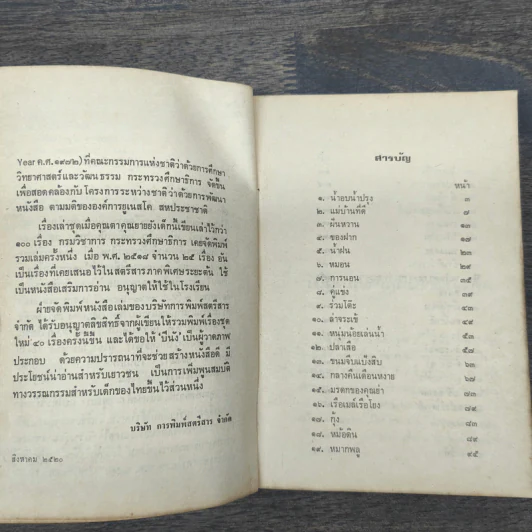 Year ค.ศ. ๑๙๗๒) ที่คณะกรรมการแห่งชาติว่าด้วยการศึกษา
วิทยาศาสตร์และวัฒนธรรม กระทรวงศึกษาธิการ จัดขึ้น
เพื่อสอดคล้องกับโครงการระหว่างชาติว่าด้วยการพัฒนา
หนังสือ ตามมติขององค์การยูเนสโก สหประชาชาติ
เรื่องเล่าชุดเมื่อคุณตาคุณยายยังเด็กนี้เขียนเล่าไว้กว่า
๑๐๐ เรื่อง กรมวิชาการ กระทรวงศึกษาธิการ เคยจัดพิมพ์
รวมเล่มครั้งหนึ่ง เมื่อ พ.ศ. ๒๕๑๘ จำนวน ๒๕ เรื่อง อัน
เป็นเรื่องที่เคยเสนอไว้ในสตรีสารภาคพิเศษระยะต้น ใช้
เป็นหนังสือเสริมการอ่าน อนุญาตให้ใช้ในโรงเรียน
ฝ่ายจัดพิมพ์หนังสือเล่มของบริษัทการพิมพ์สตรีสาร
จำกัด ได้รับอนุญาตลิขสิทธิ์จากผู้เขียนให้รวมพิมพ์เรื่องชุด
ใหม่ ๔๐ เรื่องครั้งนี้ขึ้น และได้ขอให้ 'ปีนัง' เป็นผู้วาดภาพ
ประกอบ ด้วยความปรารถนาที่จะช่วยสร้างหนังสือดี มี
ประโยชน์น่าอ่านสำหรับเยาวชน เป็นการเพิ่มพูนสมบัติ
ทางวรรณกรรมสำหรับเด็กของไทยขึ้นไว้ส่วนหนึ่ง
บริษัท การพิมพ์สตรีสาร จำกัด
สิงหาคม ๒๕๒๐
สารบัญ
หน้า
๑. น้ำอบน้ำปรุง ๓
๒. แม่บ้านที่ดี ๗
๓. ผืนหวาน ๑๓
๔. ของฝาก ๑๗
๕. น้ำฝน ๒๓
๖. หมอน ๒๙
๗. การนอน ๓๕
๘. คู่แข่ง ๔๑
๙. ร่วมโต๊ะ ๔๗
๑๐. ลำจระเข้ ๕๓
๑๑. หนุ่มน้อยเล่นน้ำ ๕๗
๑๒. ปลาเสือ ๖๓
๑๓. ขนมจีบแป้งสิบ ๖๗
๑๔. กลางคืนเดือนหงาย ๗๓
๑๕. มรดกของคุณยา ๗๗
๑๖. เรือเมล์เรือโยง ๗๙
๑๗. กุ้ง ๘๓
๑๘. หม้อดิน ๘๙
๑๙. หมากพลู ๙๕